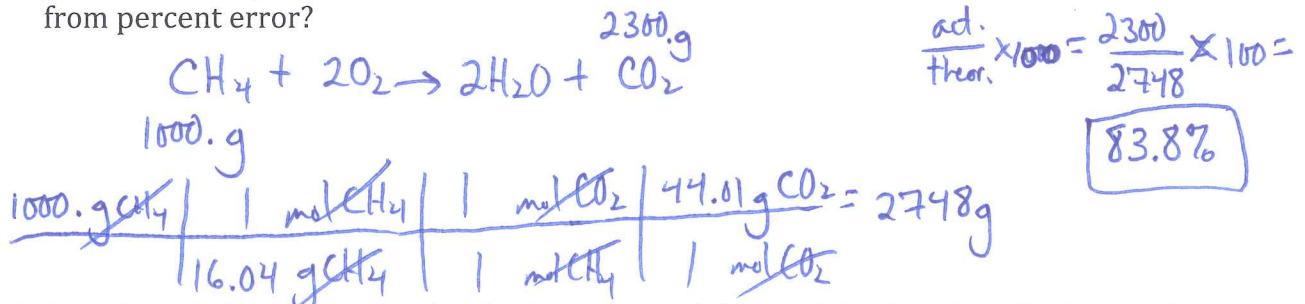 from percent error?
2300.g
CH₄ + 2O₂ → 2H₂O + CO₂
1000.g
act./theor. ×100 = 2300/2748 × 100 =
83.8%
1000. g CH₄ | 1 mol CH₄ | 1 mol CO₂ | 44.01 g CO₂ = 2748g
16.04 g CH₄ | 1 mol CH₄ | 1 mol CO₂